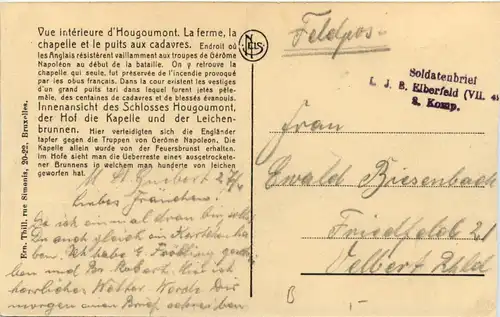 Vue intérieure d'Hougoumont. La ferme, la
chapelle et le puits aux cadavres. Endroit où
les Anglais résistèrent vaillamment aux troupes de Gérôme
Napoléon au début de la bataille. On y retrouve la
chapelle qui seule, fut préservée de l'incendie provoqué
par les obus français. Dans la cour existent les vestiges
d'un grand puits tari dans lequel furent jetés pêle-
mêle, des centaines de cadavres et de blessés évanouis.
Innenansicht des Schlosses Hougoumont,
der Hof die Kapelle und der Leichen-
brunnen. Hier verteidigten sich die Engländer
tapfer gegen die Truppen von Gerôme Napoleon. Die
Kapelle allein wurde von der Feuersbrunst erhalten.
Im Hofe sieht man die Ueberreste eines ausgetrockelte-
ner Brunnens in welchem man hunderte von Leichen
geworfen hat.
Ern. Thill, rue Simonis, 20-22, Bruxelles.
NELS
Feldpos
Soldatenbrief
L. J. B. Elberfeld (VII. 4)
2. Komp.
Frau
Ewald Biesenbach
Friedfelde 21
Velbert Rhld
St. Guibert 27/4
Liebes Fränchen!
Da ich einmal dran bin sollst
Du auch gleich ein Kärtchen ha
ben. Ich habe E. Fröhling geschrie
ben und Robert. Hier ist
herrlicher Wetter. Werde Dir
morgen einen Brief schreiben
B